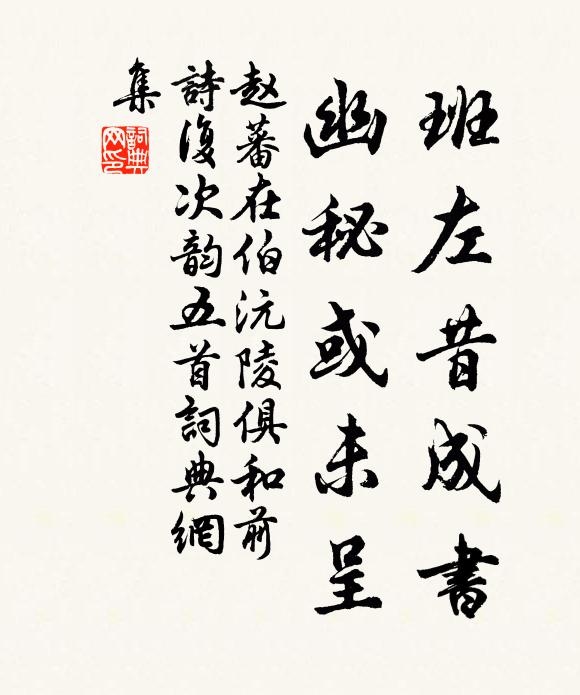 班左昔成書
幽秘或未呈
赵蕃在伯沅陵俱和前
詩復次韵五首詞典網
集
詞典
网印